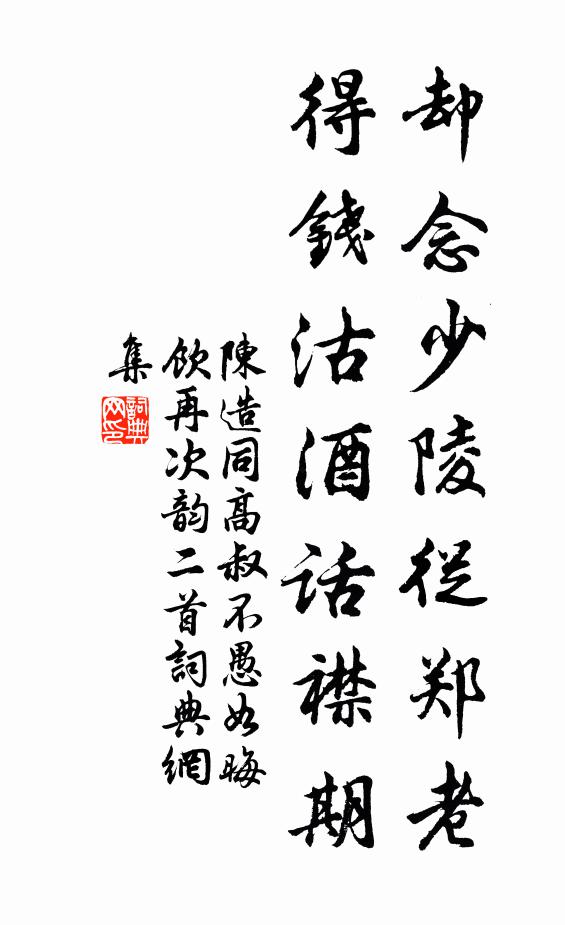 却念少陵從郑老
得錢沽酒話襟期
陳造同高叔不愚如晦
飲再次韵二首詞典網
集
詞典網印